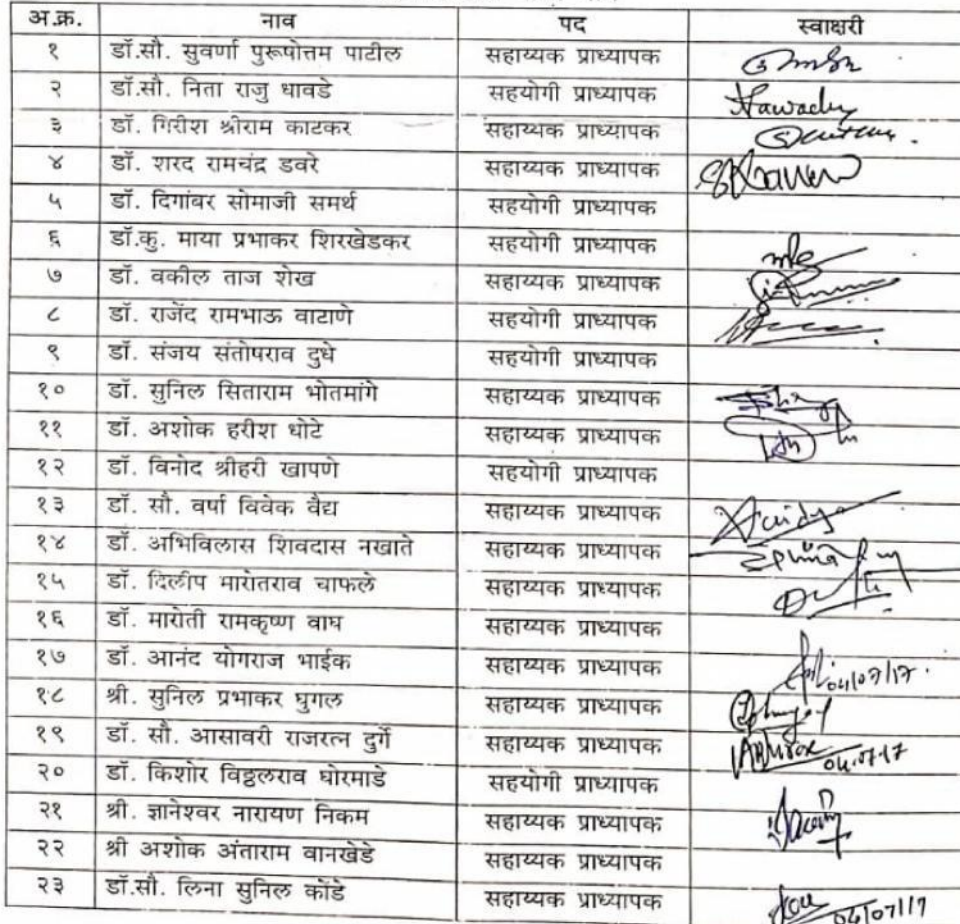 अ.क्र. नाव पद स्वाक्षरी
१ डॉ.सौ. सुवर्णा पुरूषोत्तम पाटील सहाय्यक प्राध्यापक
२ डॉ.सौ. निता राजु धावडे सहयोगी प्राध्यापक
३ डॉ. गिरीश श्रीराम काटकर सहाय्यक प्राध्यापक
४ डॉ. शरद रामचंद्र डवरे सहाय्यक प्राध्यापक
५ डॉ. दिगांबर सोमाजी समर्थ सहयोगी प्राध्यापक
६ डॉ.कु. माया प्रभाकर शिरखेडकर सहयोगी प्राध्यापक
७ डॉ. वकील ताज शेख सहयोगी प्राध्यापक
८ डॉ. राजेंद रामभाऊ वाटाणे सहयोगी प्राध्यापक
९ डॉ. संजय संतोषराव दुधे सहयोगी प्राध्यापक
१० डॉ. सुनिल सिताराम भोतमांगे सहाय्यक प्राध्यापक
११ डॉ. अशोक हरीश धोटे सहाय्यक प्राध्यापक
१२ डॉ. विनोद श्रीहरी खापणे सहयोगी प्राध्यापक
१३ डॉ. सौ. वर्षा विवेक वैद्य सहाय्यक प्राध्यापक
१४ डॉ. अभिविलास शिवदास नखाते सहाय्यक प्राध्यापक
१५ डॉ. दिलीप मारोतराव चाफले सहाय्यक प्राध्यापक
१६ डॉ. मारोती रामकृष्ण वाघ सहाय्यक प्राध्यापक
१७ डॉ. आनंद योगराज भाईक सहाय्यक प्राध्यापक 04/07/17.
१८ श्री. सुनिल प्रभाकर घुगल सहाय्यक प्राध्यापक
१९ डॉ. सौ. आसावरी राजरत्न दुर्गे सहाय्यक प्राध्यापक 04.07.17
२० डॉ. किशोर विठ्ठलराव घोरमाडे सहयोगी प्राध्यापक
२१ श्री. ज्ञानेश्वर नारायण निकम सहाय्यक प्राध्यापक
२२ श्री अशोक अंताराम वानखेडे सहाय्यक प्राध्यापक
२३ डॉ.सौ. लिना सुनिल कोंडे सहाय्यक प्राध्यापक 04/07/17